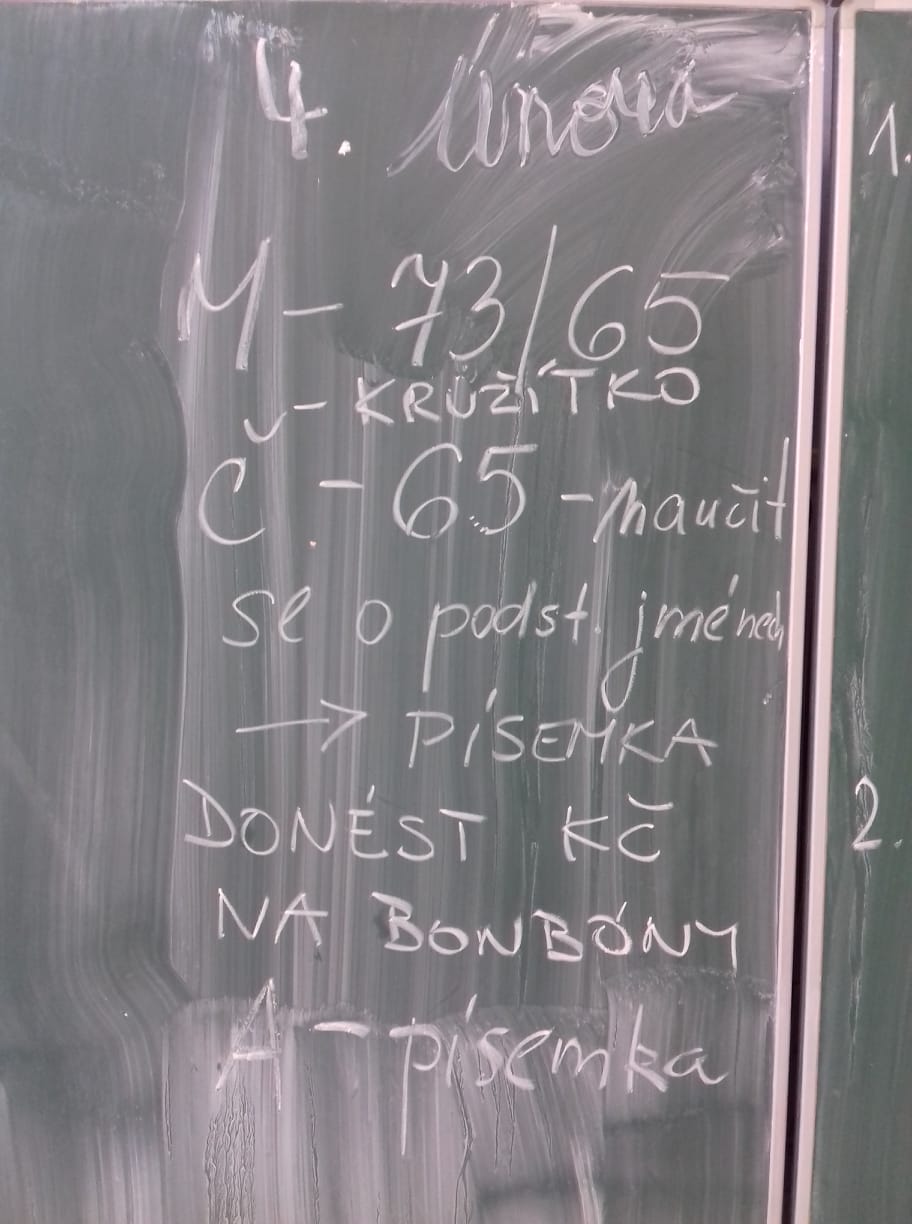 4. února
M - 73/65
- KRUŽÍTKO
Č - 65 - naučit
se o podst. jménech
→ PÍSEMKA
DONÉST KČ
NA BONBÓNY
A - písemka
1.
2.